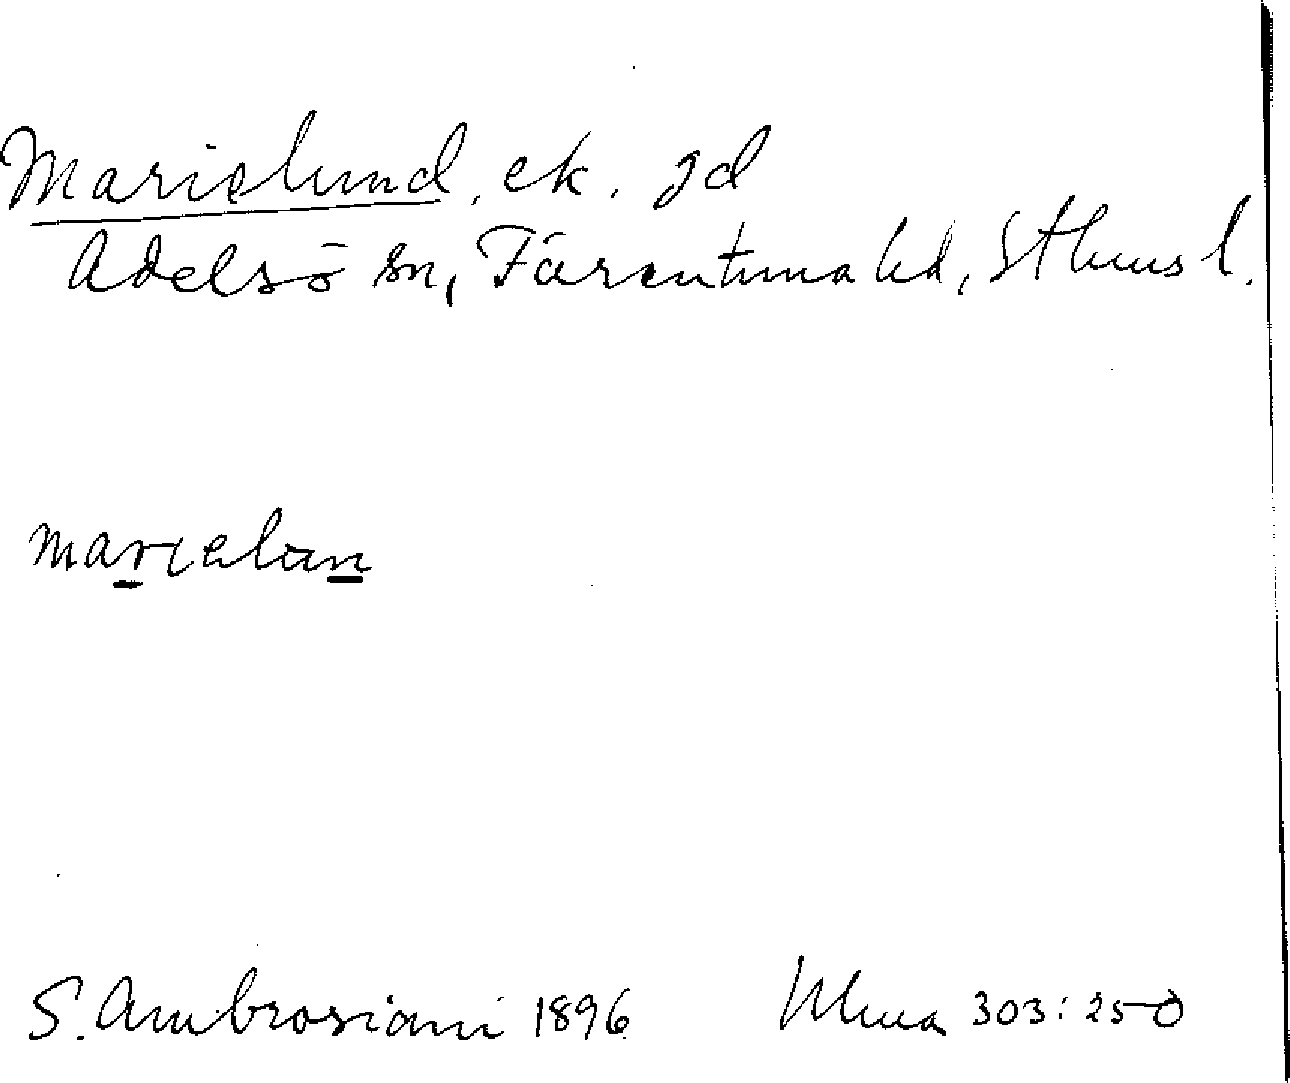 Marielund, ek. jd
Adelsö sn, Färentuna hd, Sthms l.
marielun
S. Ambrosiani 1896 Ulma 303:250